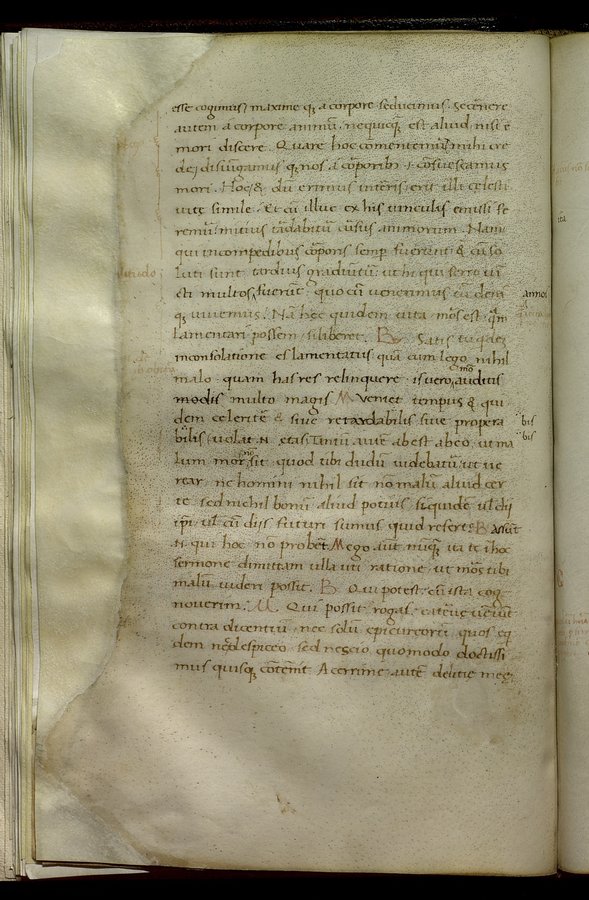 esse cogimus; maxime q; a corpore seducimus. Secernere
autem a corpore animū. nequicq̄ est aliud nisi e
mori discere. Quare hoc comentemur mihi cre
de; disiūgamus q; nos a cōporib; .i. cōsuescamus
mori. Hoc & dū erimus interis. erit illi celesti
uite simile. Et cū illuc ex his uinculis emissi fe
remur minus tardabitur cursus animorum. Nam
qui in compedibus corporis semp fuerunt. & cū so
luti sunt. tardius gradiuntur. ut hi qui ferro uī
cti multos fuerunt. quo cū uenerimus tū deni
annos
q; uiuemus. Nā hec quidem uita mors est. quā
lamentari possem si liberet. Satis tu quidē
in consolatione es lamentatus quā cum lego nihil
malo quam has res relinquere. is uero auditis
modis multo magis. M Veniet tempus & qui
dem celeriter & siue retardabilis siue propera
bis
bilis uolat .n. etas. tantū autē abest ab eo. ut ma
bis
lum mors sit. quod tibi dudū uidebatur. ut ue
rear. ne homini nihil sit non malū aliud cer
te. sed nichil bonū aliud potius. siquidē uel dii
ipsi uel cū diis futuri sumus quid refert. Assūt
.n. qui hec nō probēt. M ego aūt nūq; ita te ī hoc
sermone dimittam ulla uti ratione. ut mors tibi
malū uideri possit. Qui potest. cū ista cog
nouerim. M. Qui possit rogas. cateruę ueniūt
contra dicentiū. nec solū epicureorū quos eq
dem nō despiceo. sed nescio quo modo doctissi
mus quisq; contēnit. Acerrime autē delitie meę